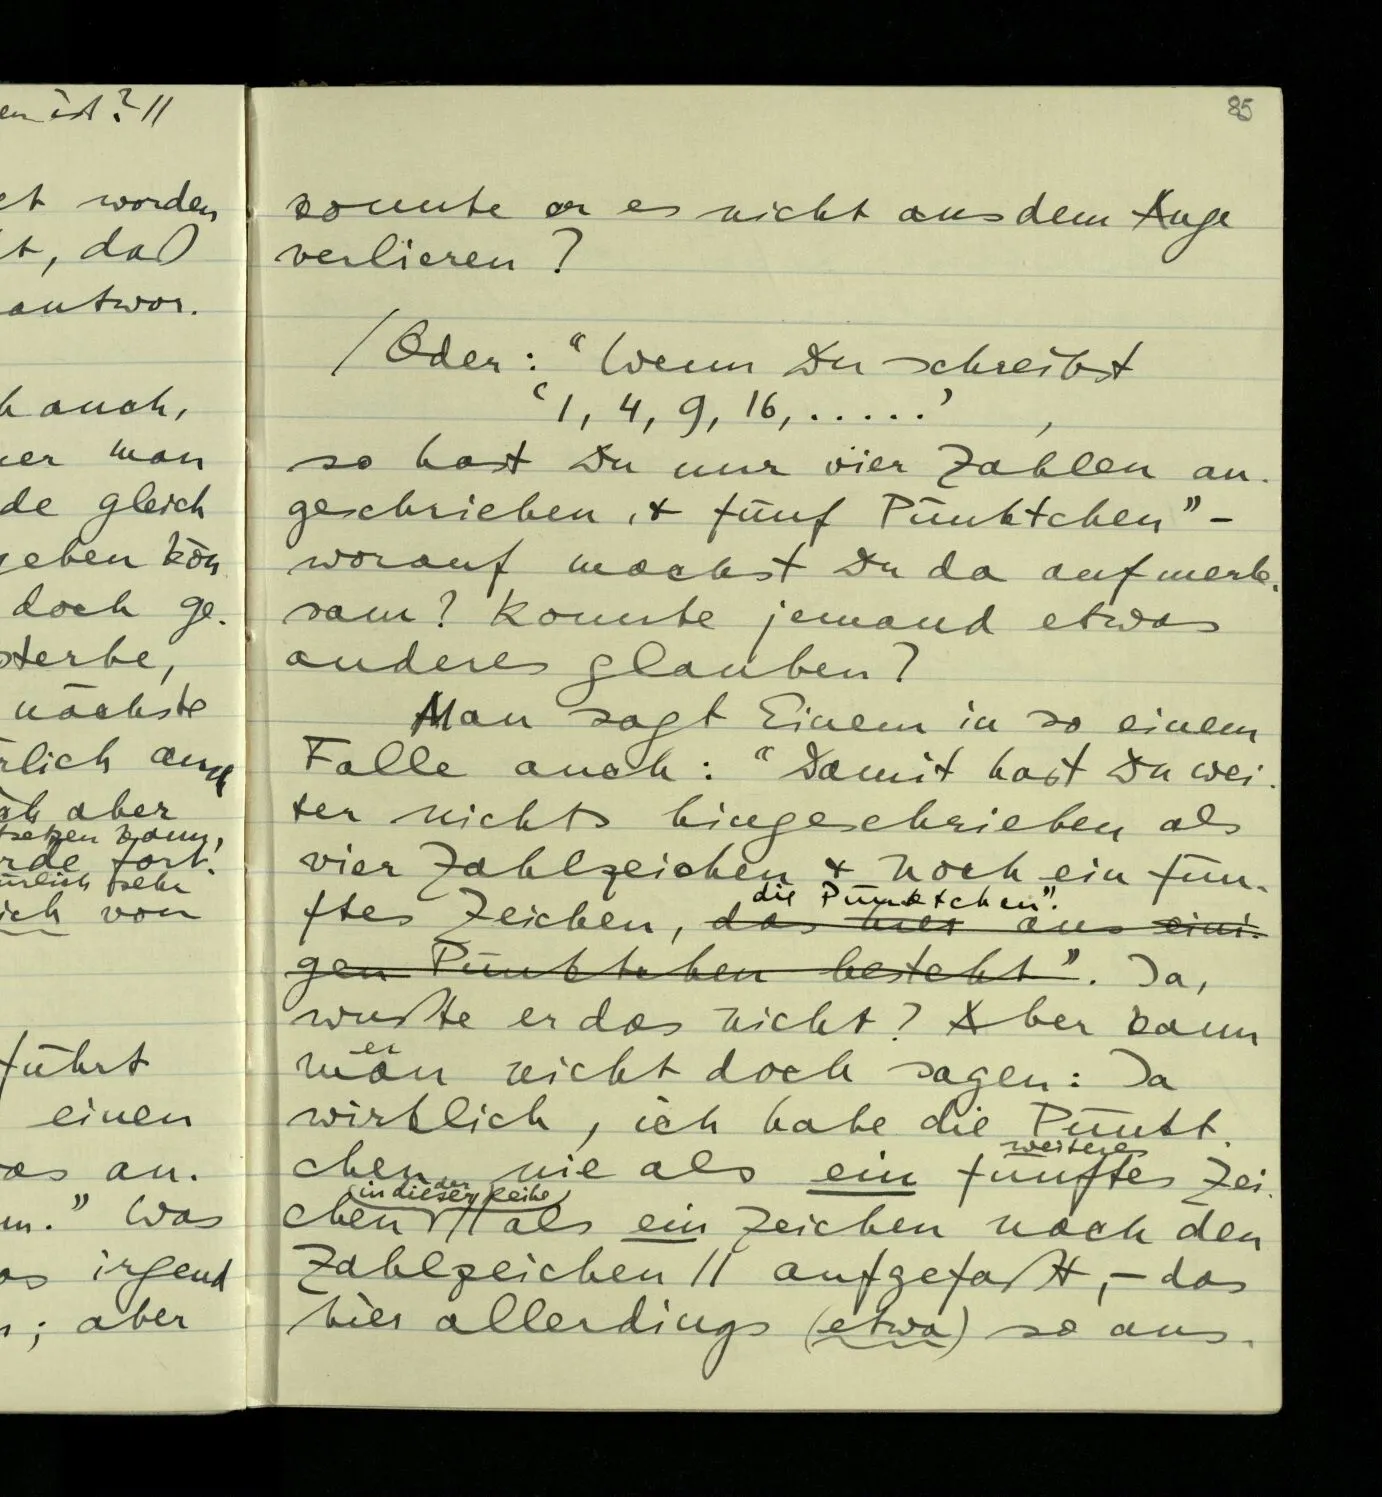 en ist? //
et worden
t, daß
antwor.
h auch,
ner man
de gleich
geben kön
doch ge.
sterbe,
nächste
rlich auch
aber
setzen kann,
rde fort.
ürlich sehr
ich von
führt
einen
as an.
m." Was
as irgend
; aber
85
konnte er es nicht aus dem Auge
verlieren?
/ Oder: “Wenn Du schreibst
‘1, 4, 9, 16, . . . . .’ ,
so hast Du nur vier Zahlen an.
geschrieben, & fünf Pünktchen” –
worauf machst Du da aufmerk.
sam? Konnte jemand etwas
anderes glauben?
Man sagt Einem in so einem
Falle auch: “Damit hast Du wei.
ter nichts hingeschrieben als
vier Zahlzeichen & noch ein fün.
die Pünktchen”.
ftes Zeichen, das hier aus eini.
gen Pünktchen besteht”. Ja,
wußte er das nicht? Aber kann
er
man nicht doch sagen: Ja
wirklich, ich habe die Pünkt.
weiteres
chen nie als ein fünftes Zei.
(in dieser Reihe)
der
chen // als ein Zeichen nach den
Zahlzeichen // aufgefaßt, – das
hier allerdings (etwa) so aus.